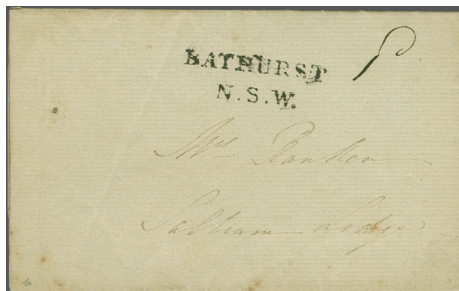 BATHURST
N.S.W.
Mrs Rankin
Saltram Lodge